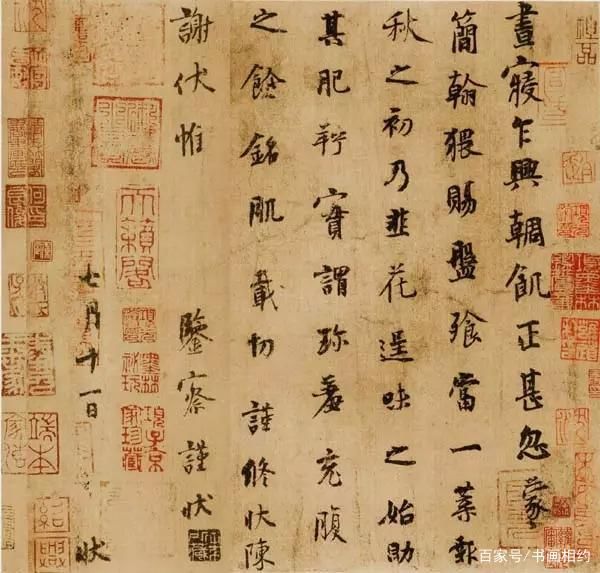 神品
晝寢乍興輖飢正甚忽蒙
簡翰猥賜盤飧當一葉報
秋之初乃韭花逞味之始助
其肥羜實謂珍羞充腹
之餘銘肌載切謹修狀陳
謝伏惟
鑒察謹狀
天籟閣
項子京家珍藏
七月十一日
狀
紹興
百家号/书画相约